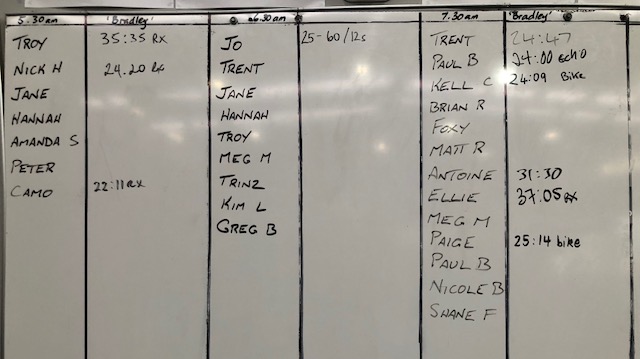 5.30am 'Bradley'
TROY 35:35 Rx
NICK H 24.20 Rx
JANE
HANNAH
AMANDA S
PETER
CAMO 22:11 Rx
6.30am
JO 25-60/12s
TRENT
JANE
HANNAH
TROY
MEG M
TRINZ
KIM L
GREG B
7.30am 'Bradley'
TRENT 24:47
PAUL B 24:00 echo
KELL C 24:09 Bike
BRIAN R
FOXY
MATT R
ANTOINE 31:30
ELLIE 37:05 Rx
MEG M
PAIGE 25:14 bike
PAUL B
NICOLE B
SHANE F